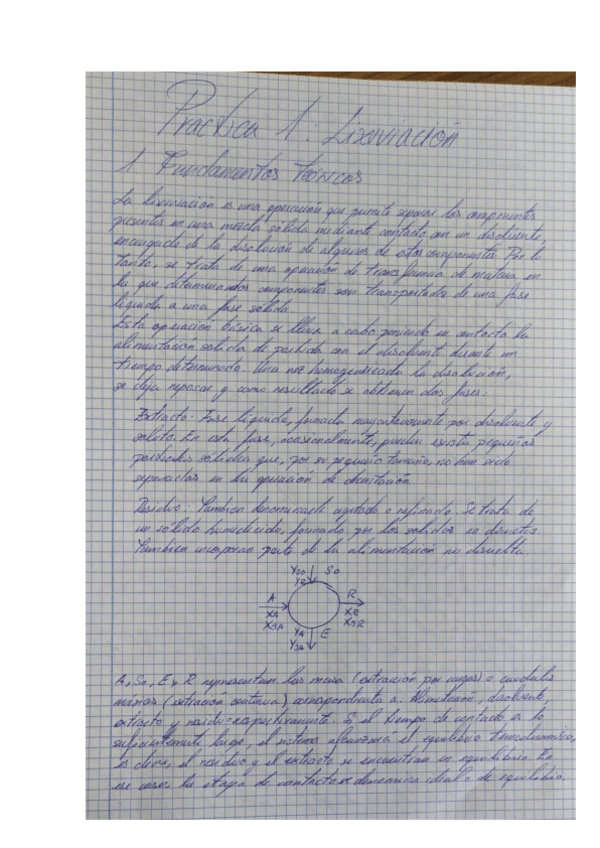 Practica 1: Lixiviación
1 Fundamentos teóricos
La lixiviación es una operación que permite separar los componentes
presentes en una mezcla sólida mediante contacto con un disolvente,
encargado de la disolución de algunos de estos componentes. Por lo
tanto, se trata de una operación de transferencia de materia en
la que determinados componentes son transportados de una fase
líquida a una fase sólida.
Esta operación básica se lleva a cabo poniendo en contacto la
alimentación sólida de partida con el disolvente durante un
tiempo determinado. Una vez homogeneizada la disolución,
se deja reposar y como resultado se obtienen dos fases:
Extracto: Fase líquida, formada mayoritariamente por disolvente y
soluto. En esta fase, ocasionalmente, pueden existir pequeñas
partículas sólidas que, por su pequeño tamaño, no han sido
separadas en la operación de
Residuo: También denominado o refinado. Se trata de
un sólido humedecido, formado por los sólidos no disueltos.
También incorporan parte de la alimentación no disuelta.
YSO So
A R
XA XR
XSA XSR
YA E
YSA
A, So, E y R representan las masas (extracción por cargas) o caudales
másicos (extracción continua) correspondientes a: Alimentación, disolvente,
extracto y residuo respectivamente. Si el tiempo de contacto es lo
suficientemente largo, el sistema alcanzará el equilibrio termodinámico,
es decir, el residuo y el extracto se encuentran en equilibrio. En
ese caso, la etapa de contacto se denomina ideal o de equilibrio.